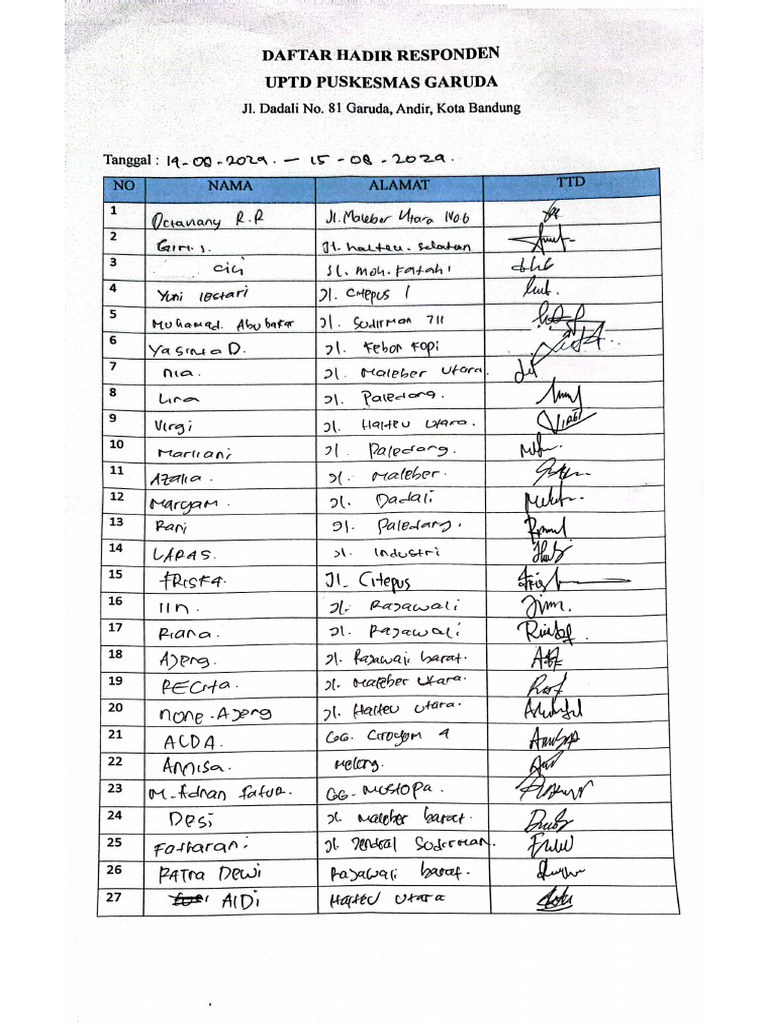 DAFTAR HADIR RESPONDEN
UPTD PUSKESMAS GARUDA
Jl. Dadali No. 81 Garuda, Andir, Kota Bandung
Tanggal : 14-08-2024. - 15-08-2024.
NO NAMA ALAMAT TTD
1 Octaviany R.R Jl. Maleber Utara 1406
2 Giri.s. Jl. halteu. selatan
3 Cici Jl. Moh. Fatahi
4 Yuni lestari Jl. Citepus 1
5 Muhamad. Abubakar Jl. Sudirman 711
6 Yasinta D. Jl. Kebon Kopi
7 Nia. Jl. Maleber Utara.
8 Lina Jl. Paledang.
9 Virgi Jl. Halteu Utara.
10 Marliani Jl. Paledang.
11 Azalia. Jl. Maleber.
12 Maryam. Jl. Dadali
13 Rani Jl. Paledang.
14 LARAS. Jl. Industri
15 FRISKA. Jl. Citepus
16 IIN. Jl. Rajawali
17 Riana. Jl. Rajawali
18 Ajeng. Jl. Rajawali barat.
19 RECITA. Jl. Maleber Utara.
20 none. Ajeng Jl. Halteu Utara.
21 ALDA. GG. Ciroyom 4
22 Annisa. Melong.
23 M. Adnan Fatur. GG. Mustopa.
24 Desi Jl. Maleber barat.
25 Jl. Jendral Sudirman.
26 RATNA DEWI Rajawali barat.
27 ALDI Halteu Utara